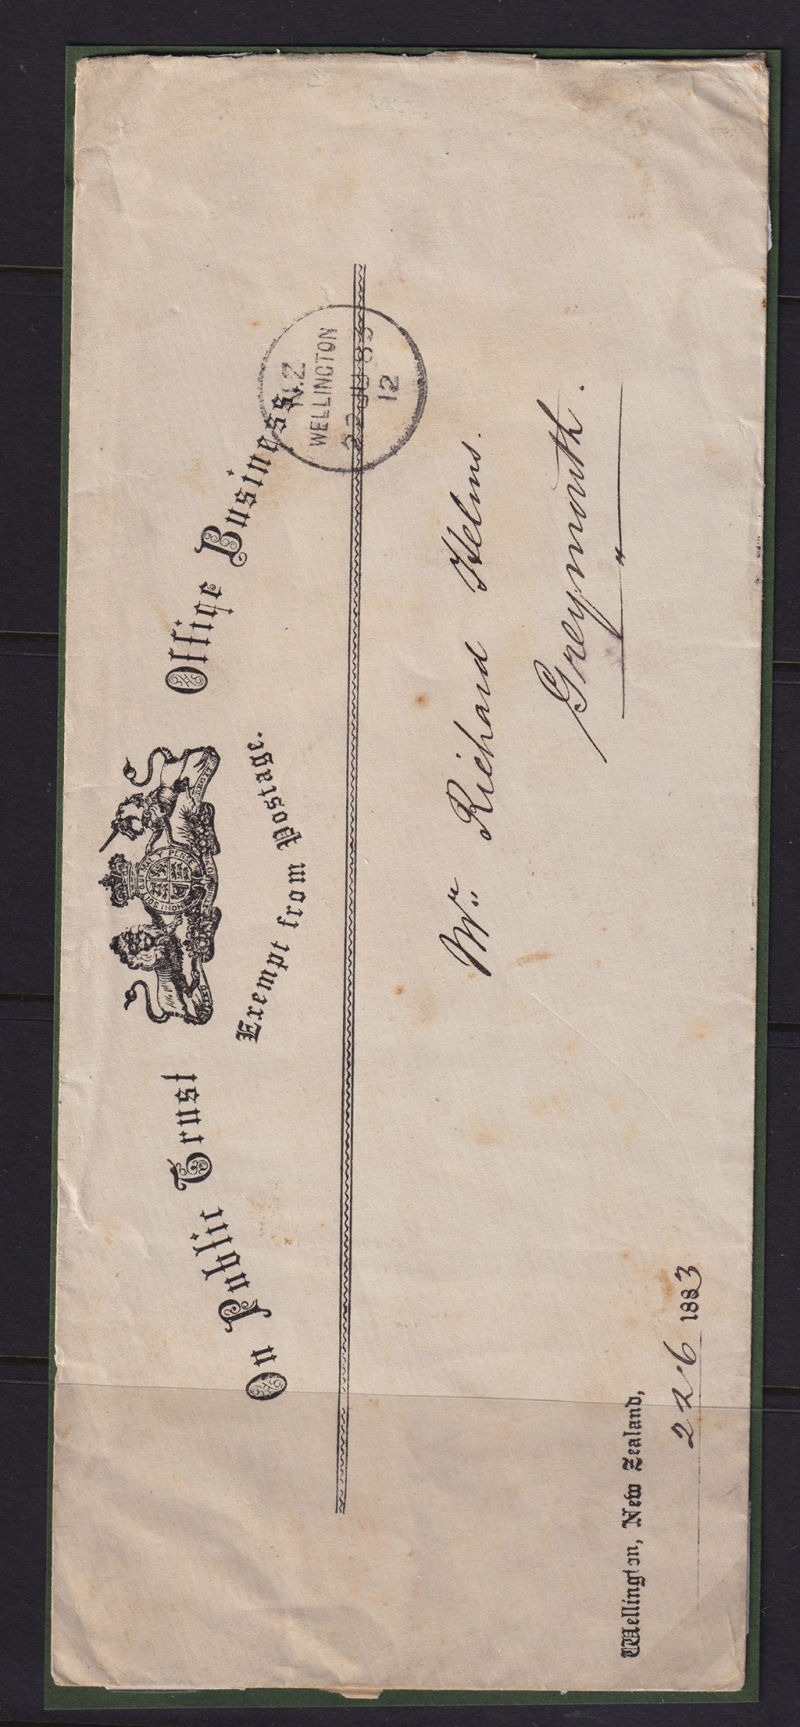 On Public Trust Office Business.
Exempt from Postage.
N.Z
WELLINGTON
22 JU 83
12
Mr. Richard Helms.
Greymouth.
Wellington, New Zealand,
22.6 1883